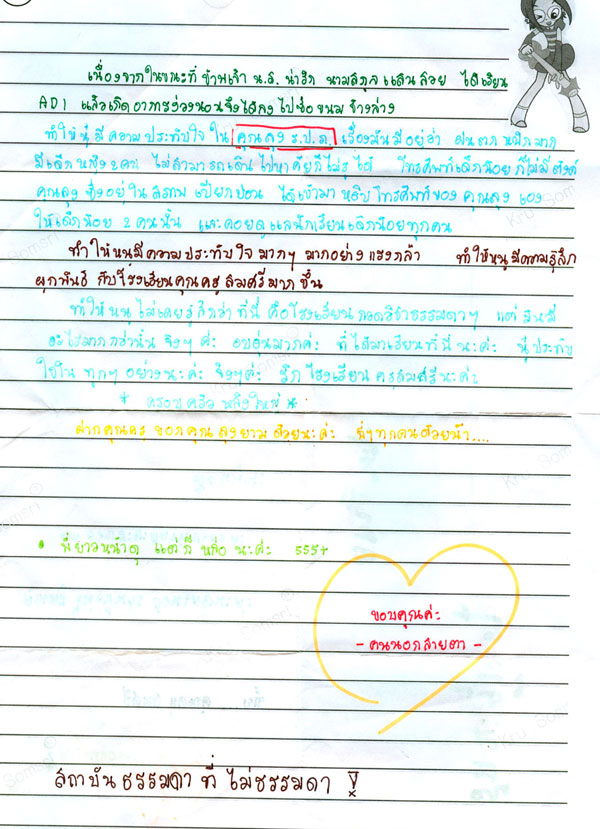 เนื่องจากในขณะที่ ข้าพเจ้า น.ส. น่ารัก นามสกุล แสนสวย ได้เรียน
AD1 แล้วเกิดอาการง่วงนอนจึงได้ลงไปซื้อขนม ข้างล่าง
ทำให้หนูมีความประทับใจใน คุณลุง ร.ป.ภ. เรื่องมันมีอยู่ว่า ฝนตก หนักมาก
มีเด็กหญิง 2 คน ไม่สามารถเดินไปหา ก็ไม่รู้ ได้ โทรศัพท์เด็กน้อยก็ไม่มีตังค์
คุณลุง ซึ่งอยู่ในสภาพ เปียกปอน ได้เข้ามา หยิบโทรศัพท์ของ คุณลุง เอง
ให้เด็กน้อย 2 คนนั้น และคอยดูแลนักเรียนเด็กน้อยทุกคน
ทำให้หนูมีความประทับใจ มากๆ มากอย่าง แรงกล้า ทำให้หนูมีความรู้สึก
ผูกพันธ์ กับโรงเรียนคุณครูสมศรีมากขึ้น
ทำให้หนู ไม่เคยรู้สึกว่า ที่นี่ คือโรงเรียน กวดวิชาธรรมดาๆ แต่ มันมี
อะไรมากกว่านั้น จริงๆ ค่ะ อบอุ่นมากค่ะ ที่ได้มาเรียนที่นี่ นะค่ะ นู๋ ประทับ
ใจใน ทุกๆ อย่างนะค่ะ จริงๆค่ะ รัก โรงเรียน ครูสมศรีนะค่ะ
ครอบครัว หลังใหญ่
ฝากคุณครู ขอบคุณ ลุงยาม ด้วยนะค่ะ พี่ๆทุกคนด้วยน้า....
พี่ยามหน้าดุ แต่ก็ หล่อ นะค่ะ 555+
ขอบคุณค่ะ
- คนนอกสายตา -
สถาบันธรรมดา ที่ ไม่ธรรมดา !